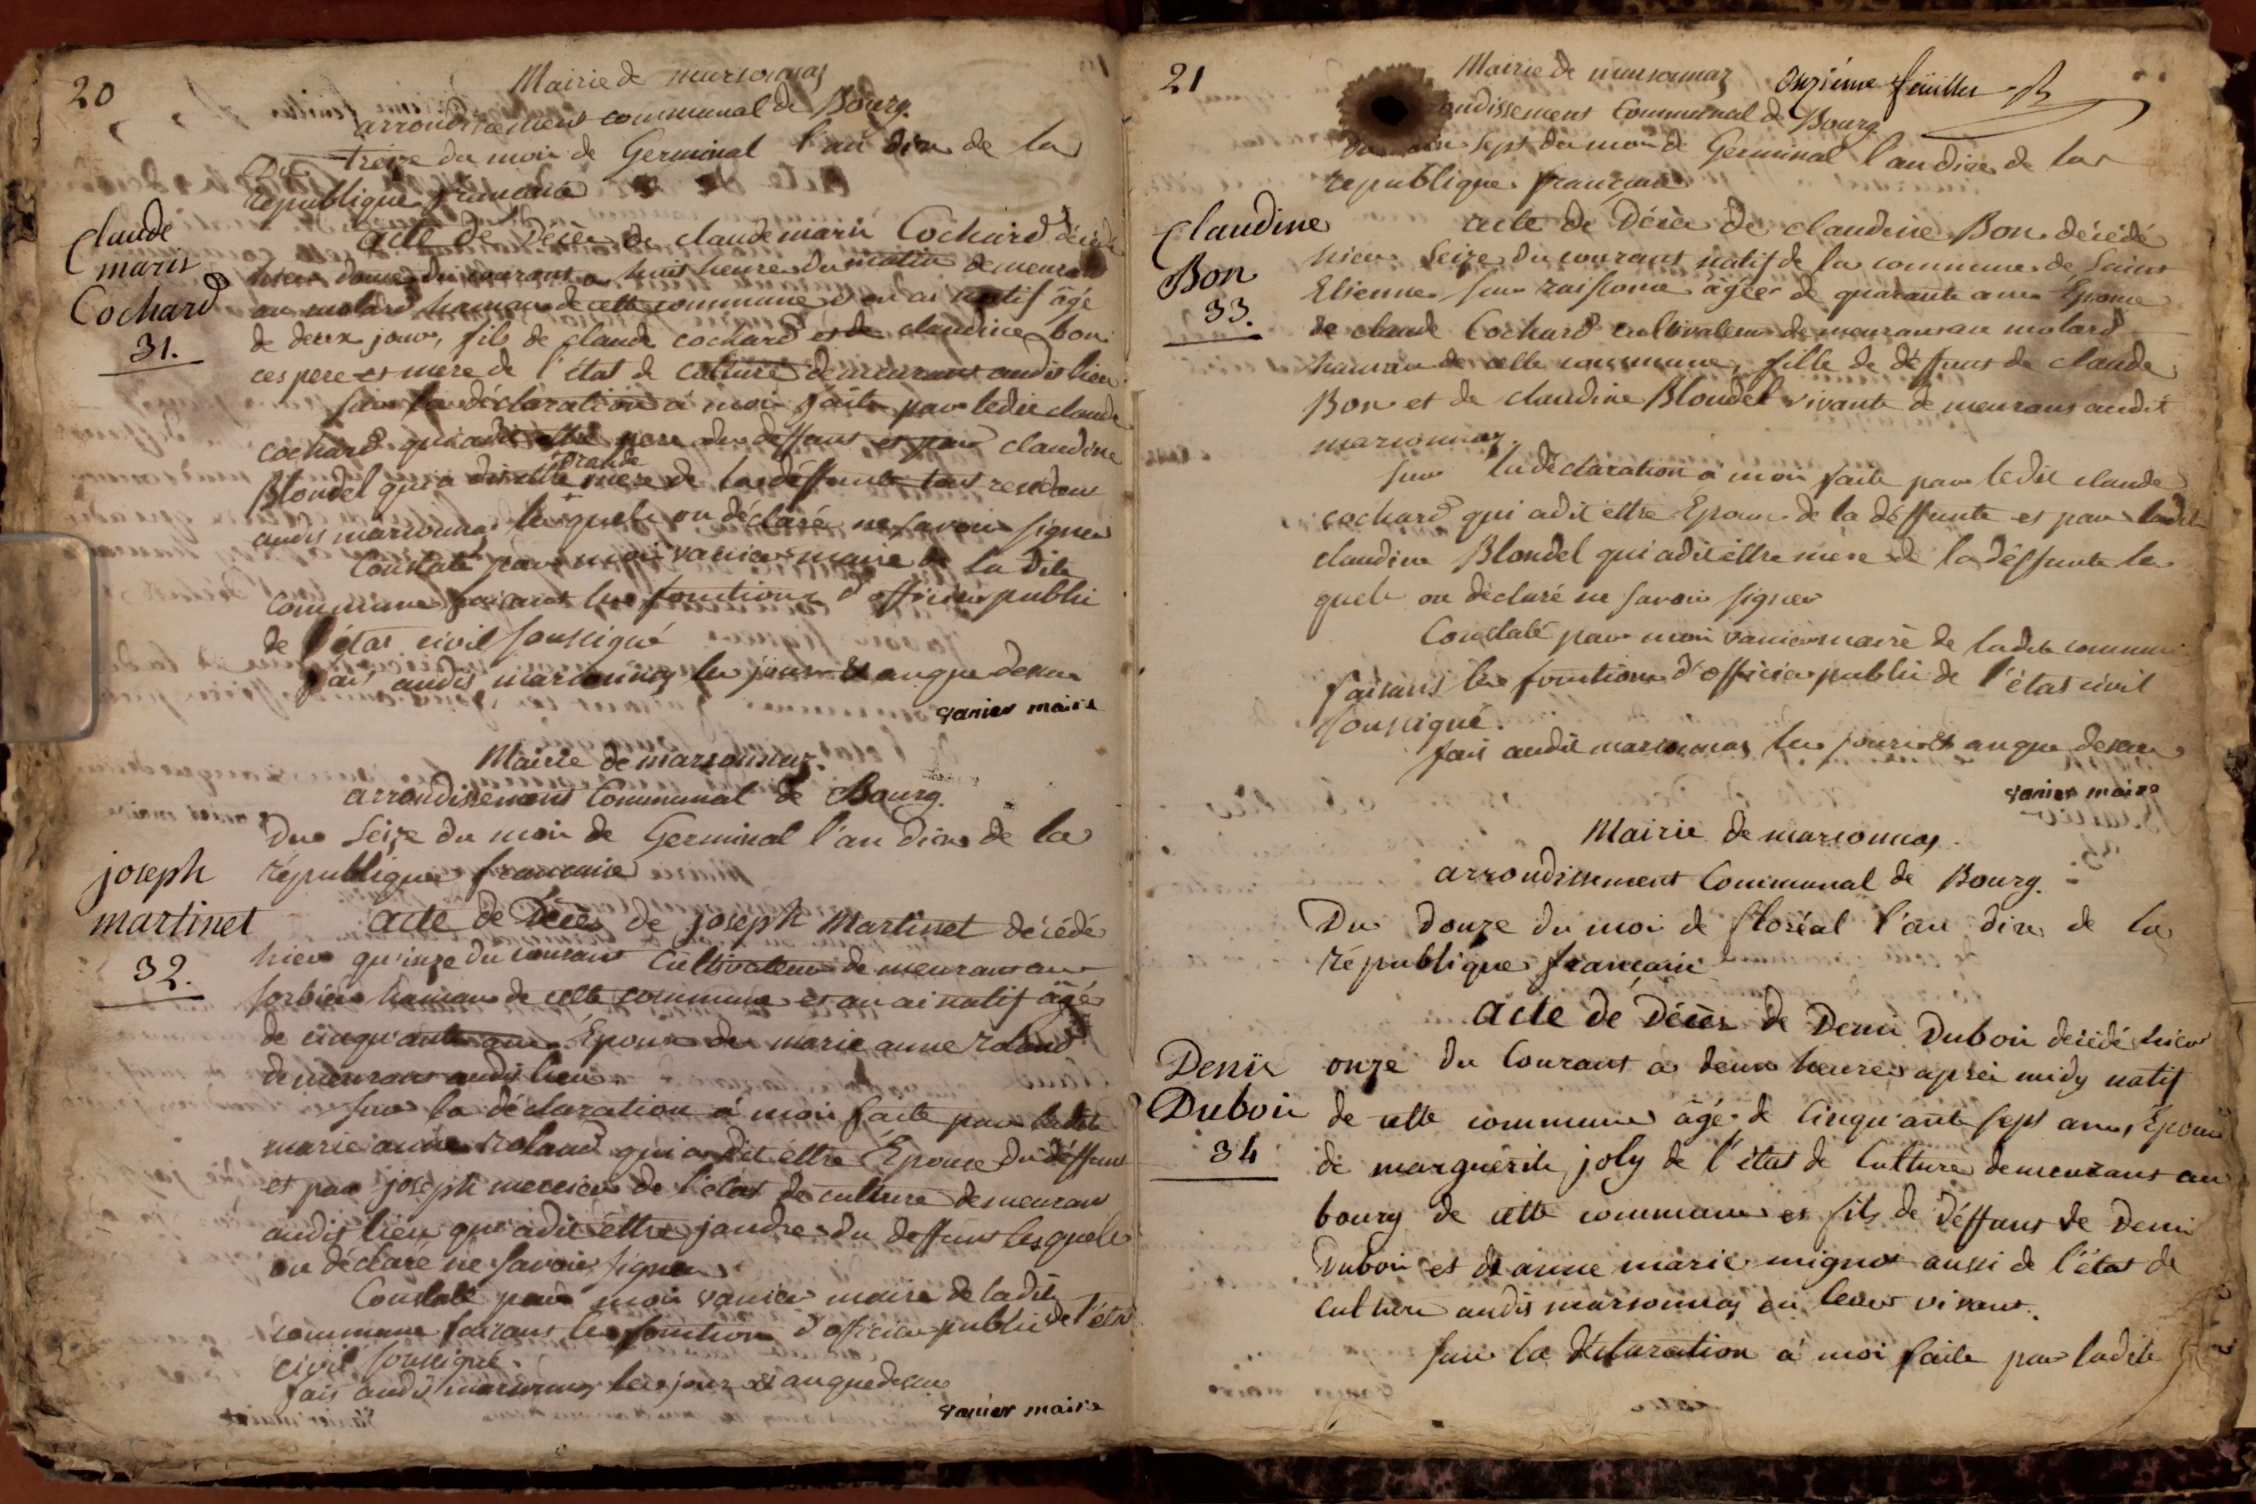 20
Mairie de marsonnas
arrondissement communal de Bourg.
Du treize du moi de Germinal l'an dix de la
république francaise
Claude
marie
Cochard
31.
acte de Décès de claude marie Cochard décédé
hier douze du courant a huit heure du matin demeurant
au molard hamau de cette commune natif âgé
de deux jour, fils de claude cochard et de claudine bon
ces pere et mere de l'état de culture demeurant audit lieu
sur la déclaration a moi faite par ledit claude
cochard qui a dit être pere du deffunt et par claudine
grande
Blondel qui a dit être mere de la déffunte tout residant
audit marsonnas lesquels on déclaré ne savoir signer
Constaté par moi vanier maire de la dite
commune faisant les fonctions d'officier public
de l'état civil soussigné
fait audit marsonnas les jour et an que dessus
vanier maire
Mairie de marsonnas.
arrondissement Communal de Bourg.
Du Seize du moi de Germinal l'an dix de la
république francaise
joseph
martinet
32.
acte de Décès de joseph Martinet décédé
hier qu'inze du courant Cultivateur demeurant au
sorbier hamau de cette commune et an ai natif âgé
de cinqu'ante ans Epoux de marie anne roland
demeurant audit lieu
sur la déclaration a moi faite par ladite
marie anne roland qui a dit être Epouse du déffunt
et par joseph mercier de l'état de culture demeurant
audit lieu qui a dit être jandre du deffunt lesquels
on déclaré ne savoir signer
Constaté par moi vanier maire de ladite
commune faisant les fonction d'officier public de l'état
civil soussigné.
fait audit marsonnas les jour et an que dessus
vanier maire
21
Mairie de marsonnas
Onzième feuillet
arrondissement Communal de Bourg
Du dix sept du moi de Germinal l'an dix de la
republique francaise
Claudine
Bon
33.
acte de Décès de claudine Bon décédé
hier seize du courant natif de la commune de saint
Etienne sur raissouse agée de quarante ans Epouse
de claude Cochard cultivateur demeurant au molard
hamau de cette commune, fille de déffunt de claude
Bon et de claudine Blondel vivante demeurant audit
marsonnas.
sur la déclaration a moi faite par ledit claude
cochard qui a dit être Epoux de la déffunte et par ladite
claudine Blondel qui a dit être mere de la déffunte les
quels on déclaré ne savoir signer
Constaté par moi vanier maire de ladite commune
faisant les fonctions d'officier public de l'état civil
soussigné.
fait audit marsonnas les jour et an que dessus
vanier maire
Mairie de marsonnas
arrondissement Communal de Bourg.
Du Douze du moi de floréal l'an dix de la
république francaise
Denis
Dubois
34
acte de Décès de Denis Dubois décédé hier
onze du Courant a deux heures aprés midy natif
de cette commune âgé de Cinqu'ante sept ans, Epoux
de marguerite joly de l'état de Culture demeurant au
bourg de cette commune et fils de déffunt de Denis
Dubois et de anne marie mignot aussi de l'état de
culture audit marsonnas en leur vivant.
sur la déclaration a moi faite par ladite